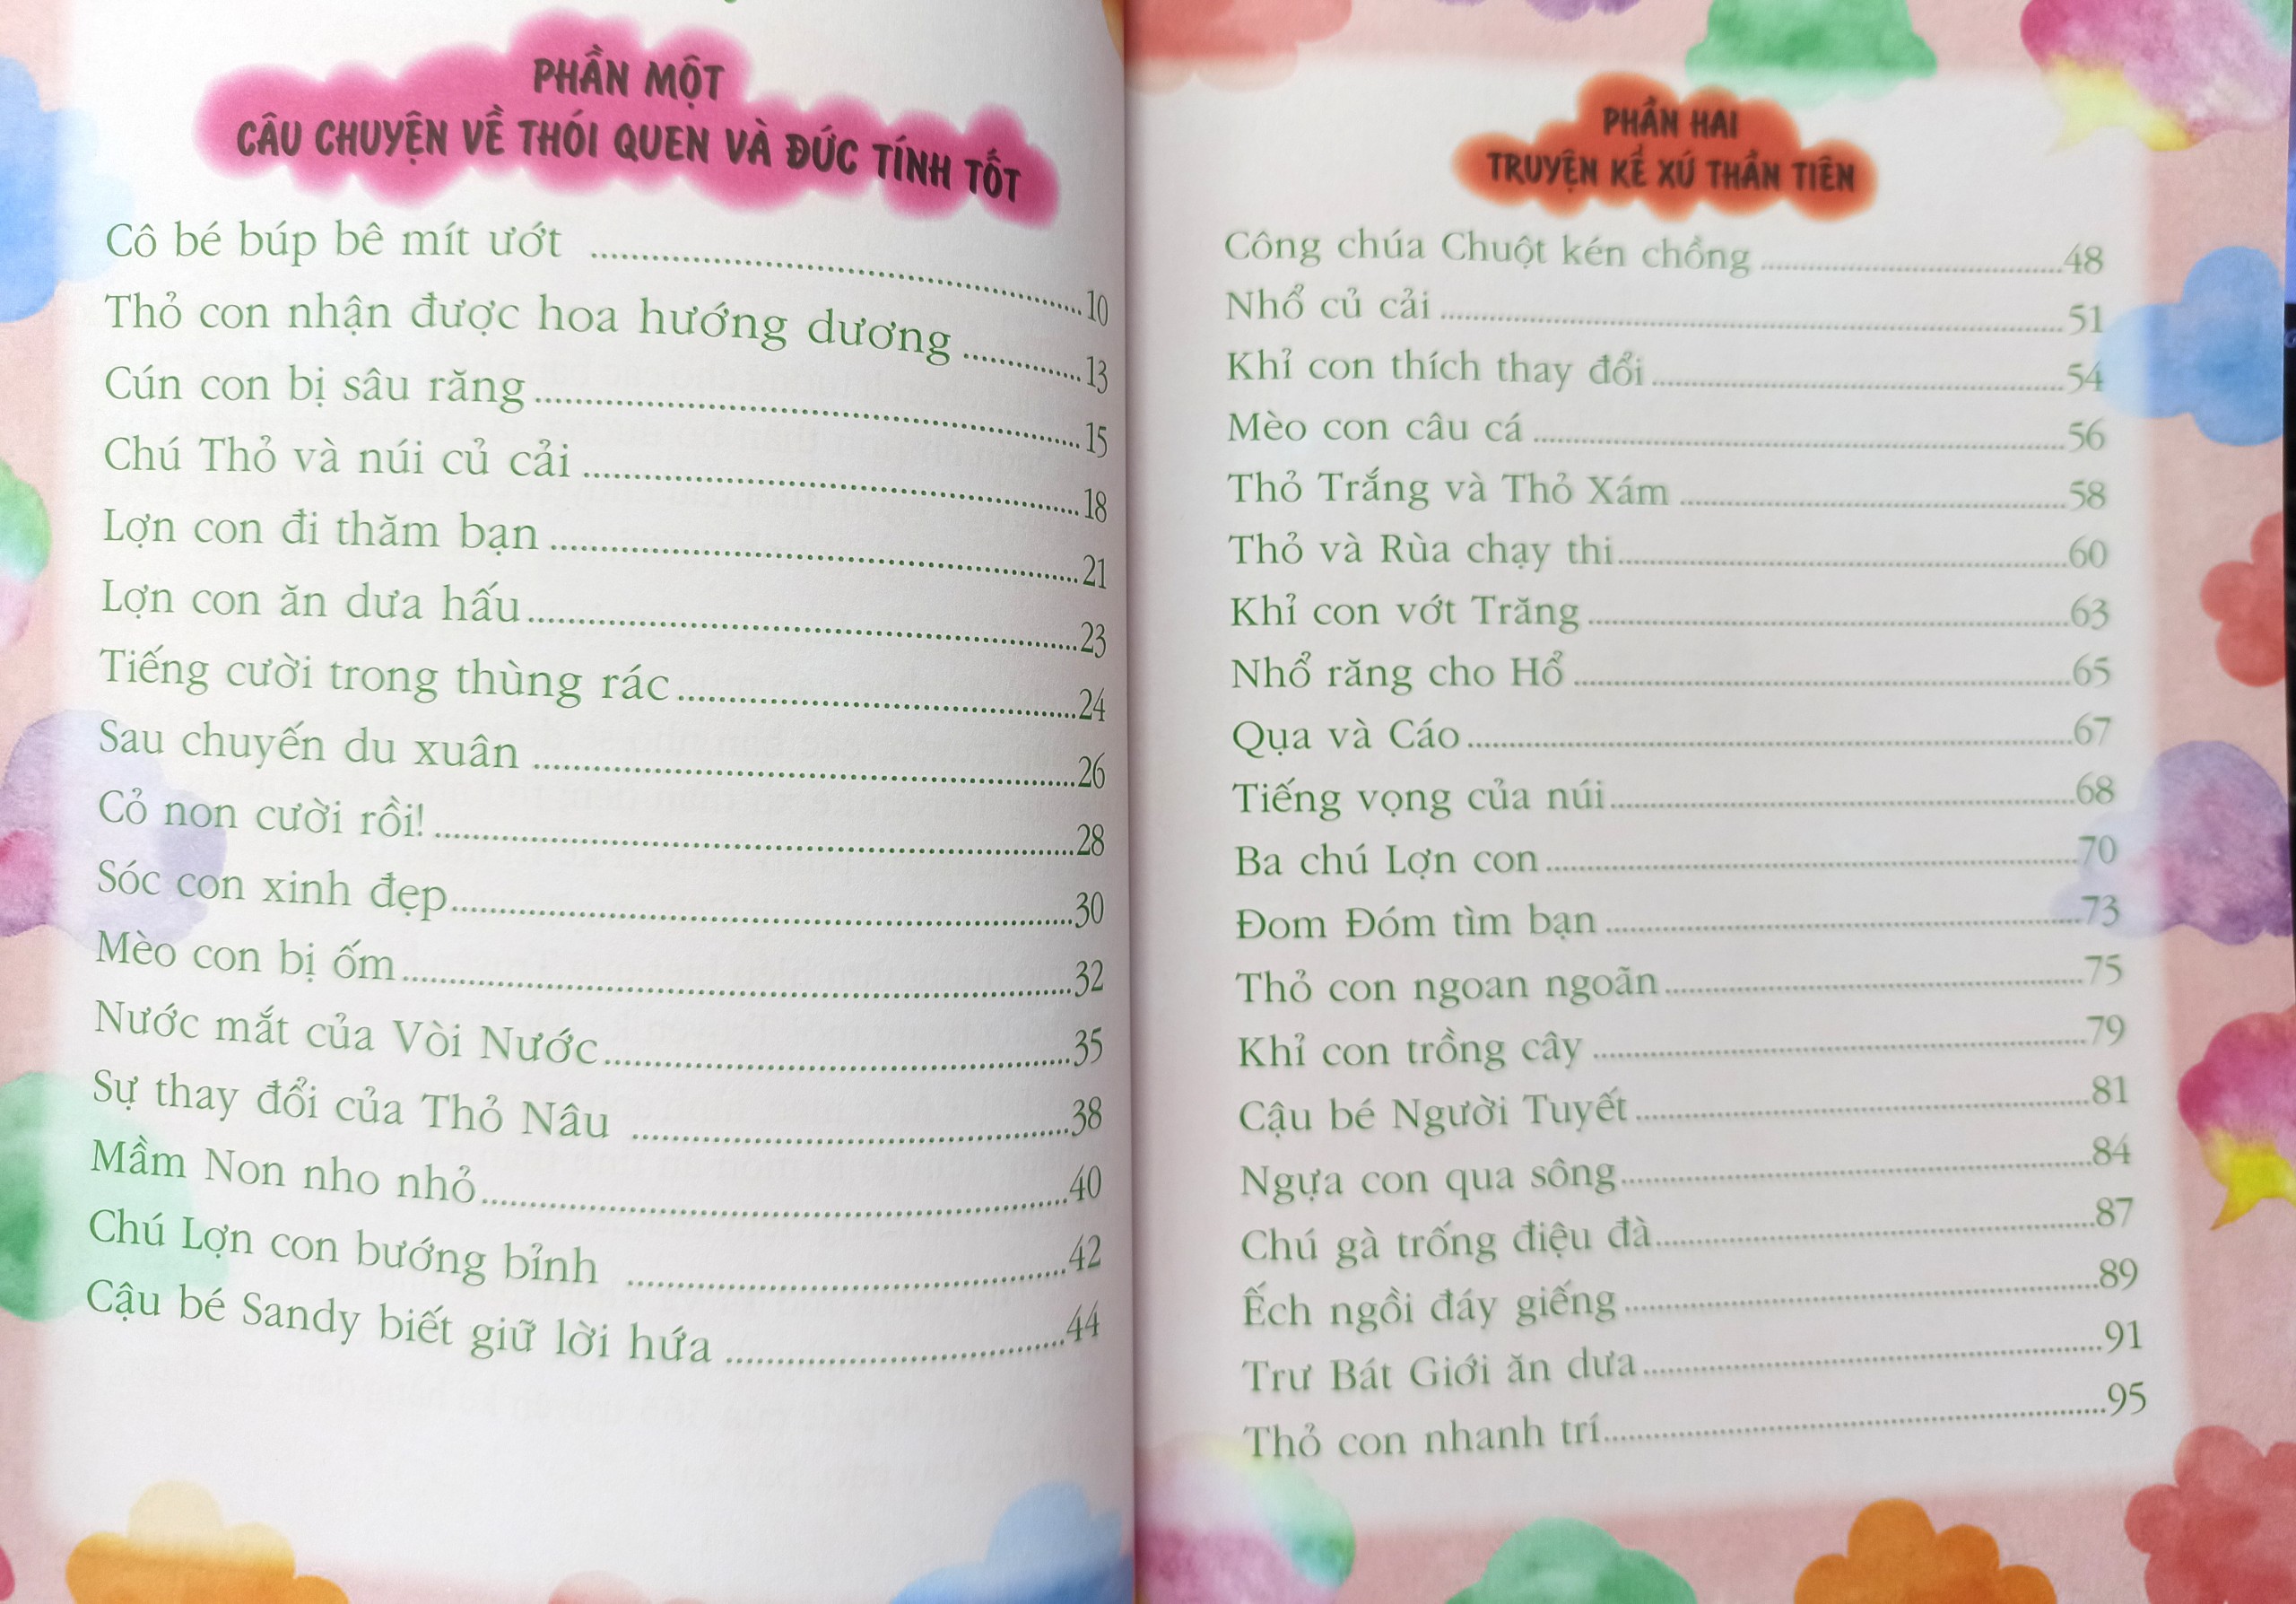 PHẦN MỘT
CÂU CHUYỆN VỀ THÓI QUEN VÀ ĐỨC TÍNH TỐT
Cô bé búp bê mít ướt ..........10
Thỏ con nhận được hoa hướng dương ..........13
Cún con bị sâu răng ..........15
Chú Thỏ và núi củ cải ..........18
Lợn con đi thăm bạn ..........21
Lợn con ăn dưa hấu ..........23
Tiếng cười trong thùng rác ..........24
Sau chuyến du xuân ..........26
Cỏ non cười rồi! ..........28
Sóc con xinh đẹp ..........30
Mèo con bị ốm ..........32
Nước mắt của Vòi Nước ..........35
Sự thay đổi của Thỏ Nâu ..........38
Mầm Non nho nhỏ ..........40
Chú Lợn con bướng bỉnh ..........42
Cậu bé Sandy biết giữ lời hứa ..........44
PHẦN HAI
TRUYỆN KỂ XỨ THẦN TIÊN
Công chúa Chuột kén chồng ..........48
Nhổ củ cải ..........51
Khỉ con thích thay đổi ..........54
Mèo con câu cá ..........56
Thỏ Trắng và Thỏ Xám ..........58
Thỏ và Rùa chạy thi ..........60
Khỉ con vớt Trăng ..........63
Nhổ răng cho Hổ ..........65
Qụa và Cáo ..........67
Tiếng vọng của núi ..........68
Ba chú Lợn con ..........70
Đom Đóm tìm bạn ..........73
Thỏ con ngoan ngoãn ..........75
Khỉ con trồng cây ..........79
Cậu bé Người Tuyết ..........81
Ngựa con qua sông ..........84
Chú gà trống điệu đà ..........87
Ếch ngồi đáy giếng ..........89
Trư Bát Giới ăn dưa ..........91
Thỏ con nhanh trí ..........95